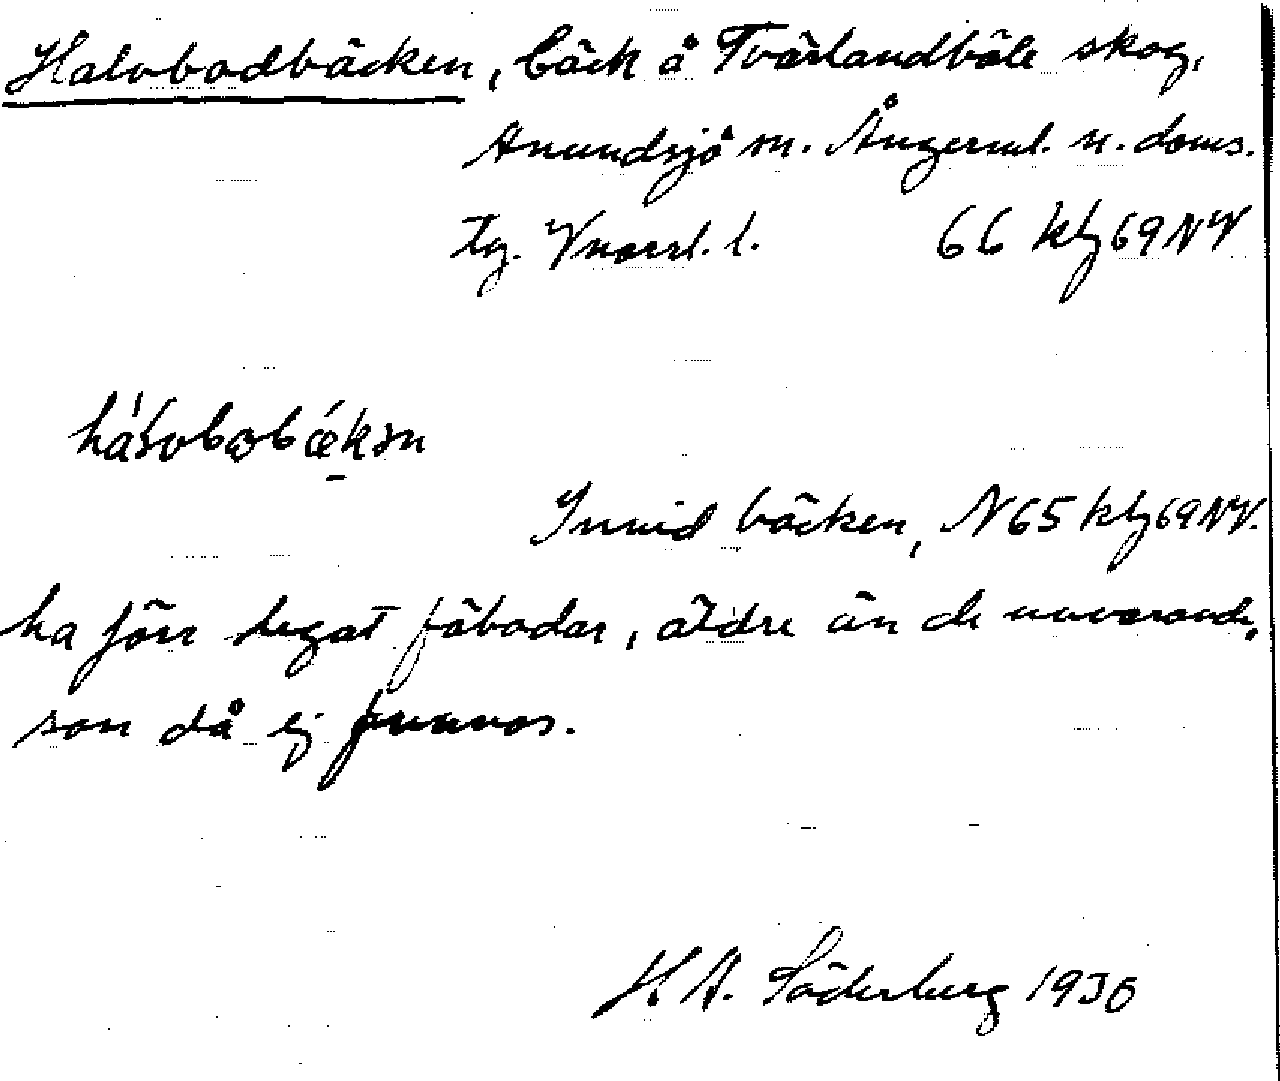 Halvbodbäcken, bäck å Tvärlandböle skog,
Anundsjö sn. Ångerml. n. doms.
tg. Vnorrl. l. 66 kbj 69 NV
Invid bäcken, N 65 kbj 69 NV.
ha förr legat fäbodar, äldre än de nuvarande,
som då ej funnos.
H. A. Söderberg 1930